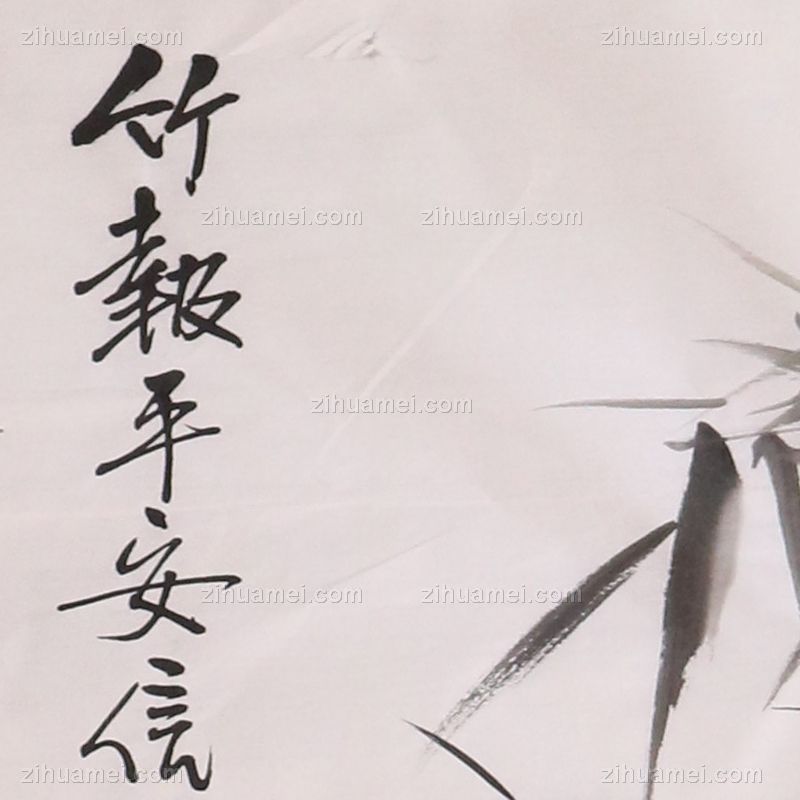 竹報平安信
zihuamei.com zihuamei.com
zihuamei.com zihuamei.com
zihuamei.com
zihuamei.com zihuamei.com
zihuamei.com zihuamei.com